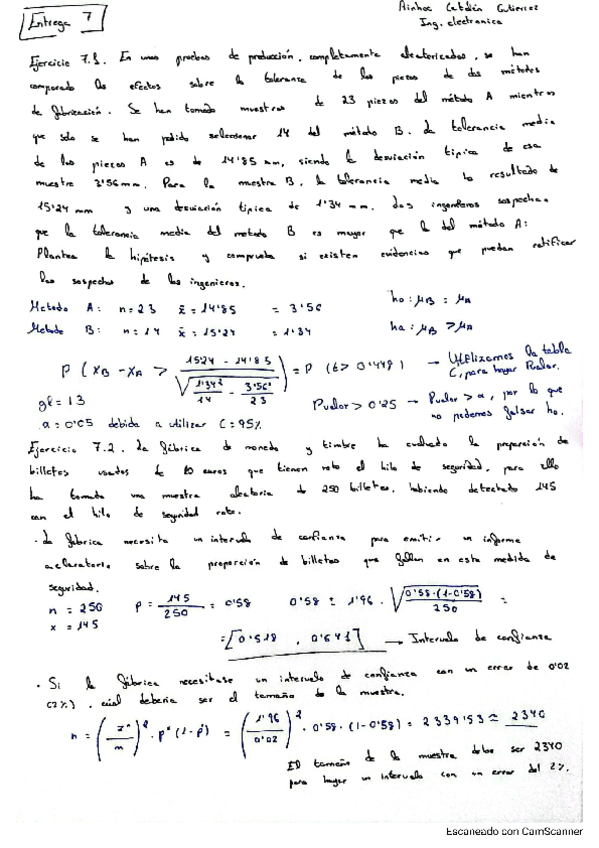 Entrega 7
Ainhoa Catalán Gutierrez
Ing. electronica
Ejercicio 7.1. En unas pruebas de producción, completamente aleatorizadas, se han
comparado los efectos sobre la tolerancia de las piezas de dos métodos
de fabricación. Se han tomado muestras de 23 piezas del método A mientras
que solo se han podido seleccionar 14 del método B. La tolerancia media
de las piezas A es de 14'85 mm, siendo la desviación típica de esa
muestra 3'56mm. Para la muestra B, la tolerancia media ha resultado de
15'24 mm y una desviación típica de 1'34 mm. dos ingenieros sospechan
que la tolerancia media del metodo B es mayor que la del método A:
Plantea la hipótesis y comprueba si existen evidencias que puedan ratificar
las sospechas de los ingenieros.
Metodo A: n=23 x̄ = 14'85 = 3'56 ho: μB = μA
Metodo B: n=14 x̄ = 15'24 = 1'34 ha: μB > μA
P ( xB - xA > (15'24 - 14'85) / √(1'34²/14 - 3'56²/23) ) = P (t > 0'448) → Utilizamos la tabla
C, para hayar Pvalor.
gl = 13 Pvalor > 0'25 → Pvalor > α, por lo que
no podemos falsar ho.
α = 0'05 debida a utilizar C = 95%
Ejercicio 7.2. La fábrica de moneda y timbre ha evaluado la proporción de
billetes usados de 10 euros que tienen roto el hilo de seguridad, para ello
ha tomado una muestra aleatoria de 250 billetes, habiendo detectado 145
con el hilo de seguridad roto.
· La fabrica necesita un intervalo de confianza para emitir un informe
aclaratorio sobre la proporción de billetes que fallan en esta medida de
seguridad.
n = 250 p = 145/250 = 0'58 0'58 ± 1'96 · √(0'58·(1-0'58)/250) =
x = 145
= [0'518 , 0'641] → Intervalo de confianza
· Si la fábrica necesitase un intervalo de confianza con un error de 0'02
(2%). cúal debería ser el tamaño de la muestra.
n = (z*/m)² · p* (1-p*) = (1'96/0'02)² · 0'58 · (1-0'58) = 2339'53 ≃ 2340
El tamaño de la muestra debe ser 2340
para hayar un intervalo con un error del 2%.
Escaneado con CamScanner